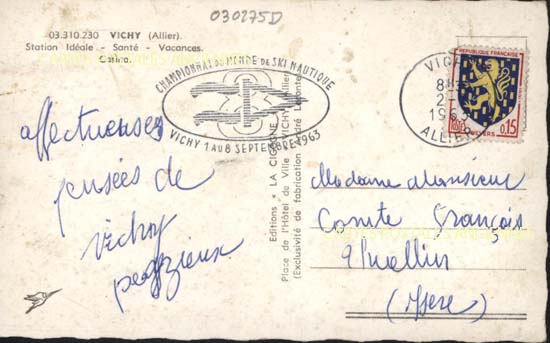 030275D
03.310.230 VICHY (Allier).
Station Idéale - Santé - Vacances.
Casino.
CHAMPIONNAT DU MONDE DE SKI NAUTIQUE
VICHY 1 AU 8 SEPTEMBRE 1963
VICHY
1963
ALLIER
REPUBLIQUE FRANÇAISE
0,15
affectueuses
pensées de
Vichy
Editions * LA CIGOGNE * VICHY (Allier)
Place de l'Hôtel de Ville
(Exclusivité de fabrication André Leconte)
Madame Monsieur
Comte François
(Isere)